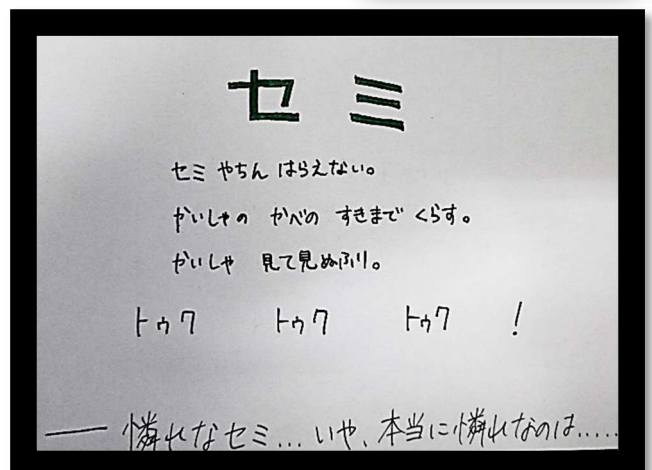 セミ
セミ やちん はらえない。
かいしゃの かべの すきまで くらす。
かいしゃ 見て見ぬふり。
トゥク トゥク トゥク !
── 憐れなセミ... いや、本当に憐れなのは.....